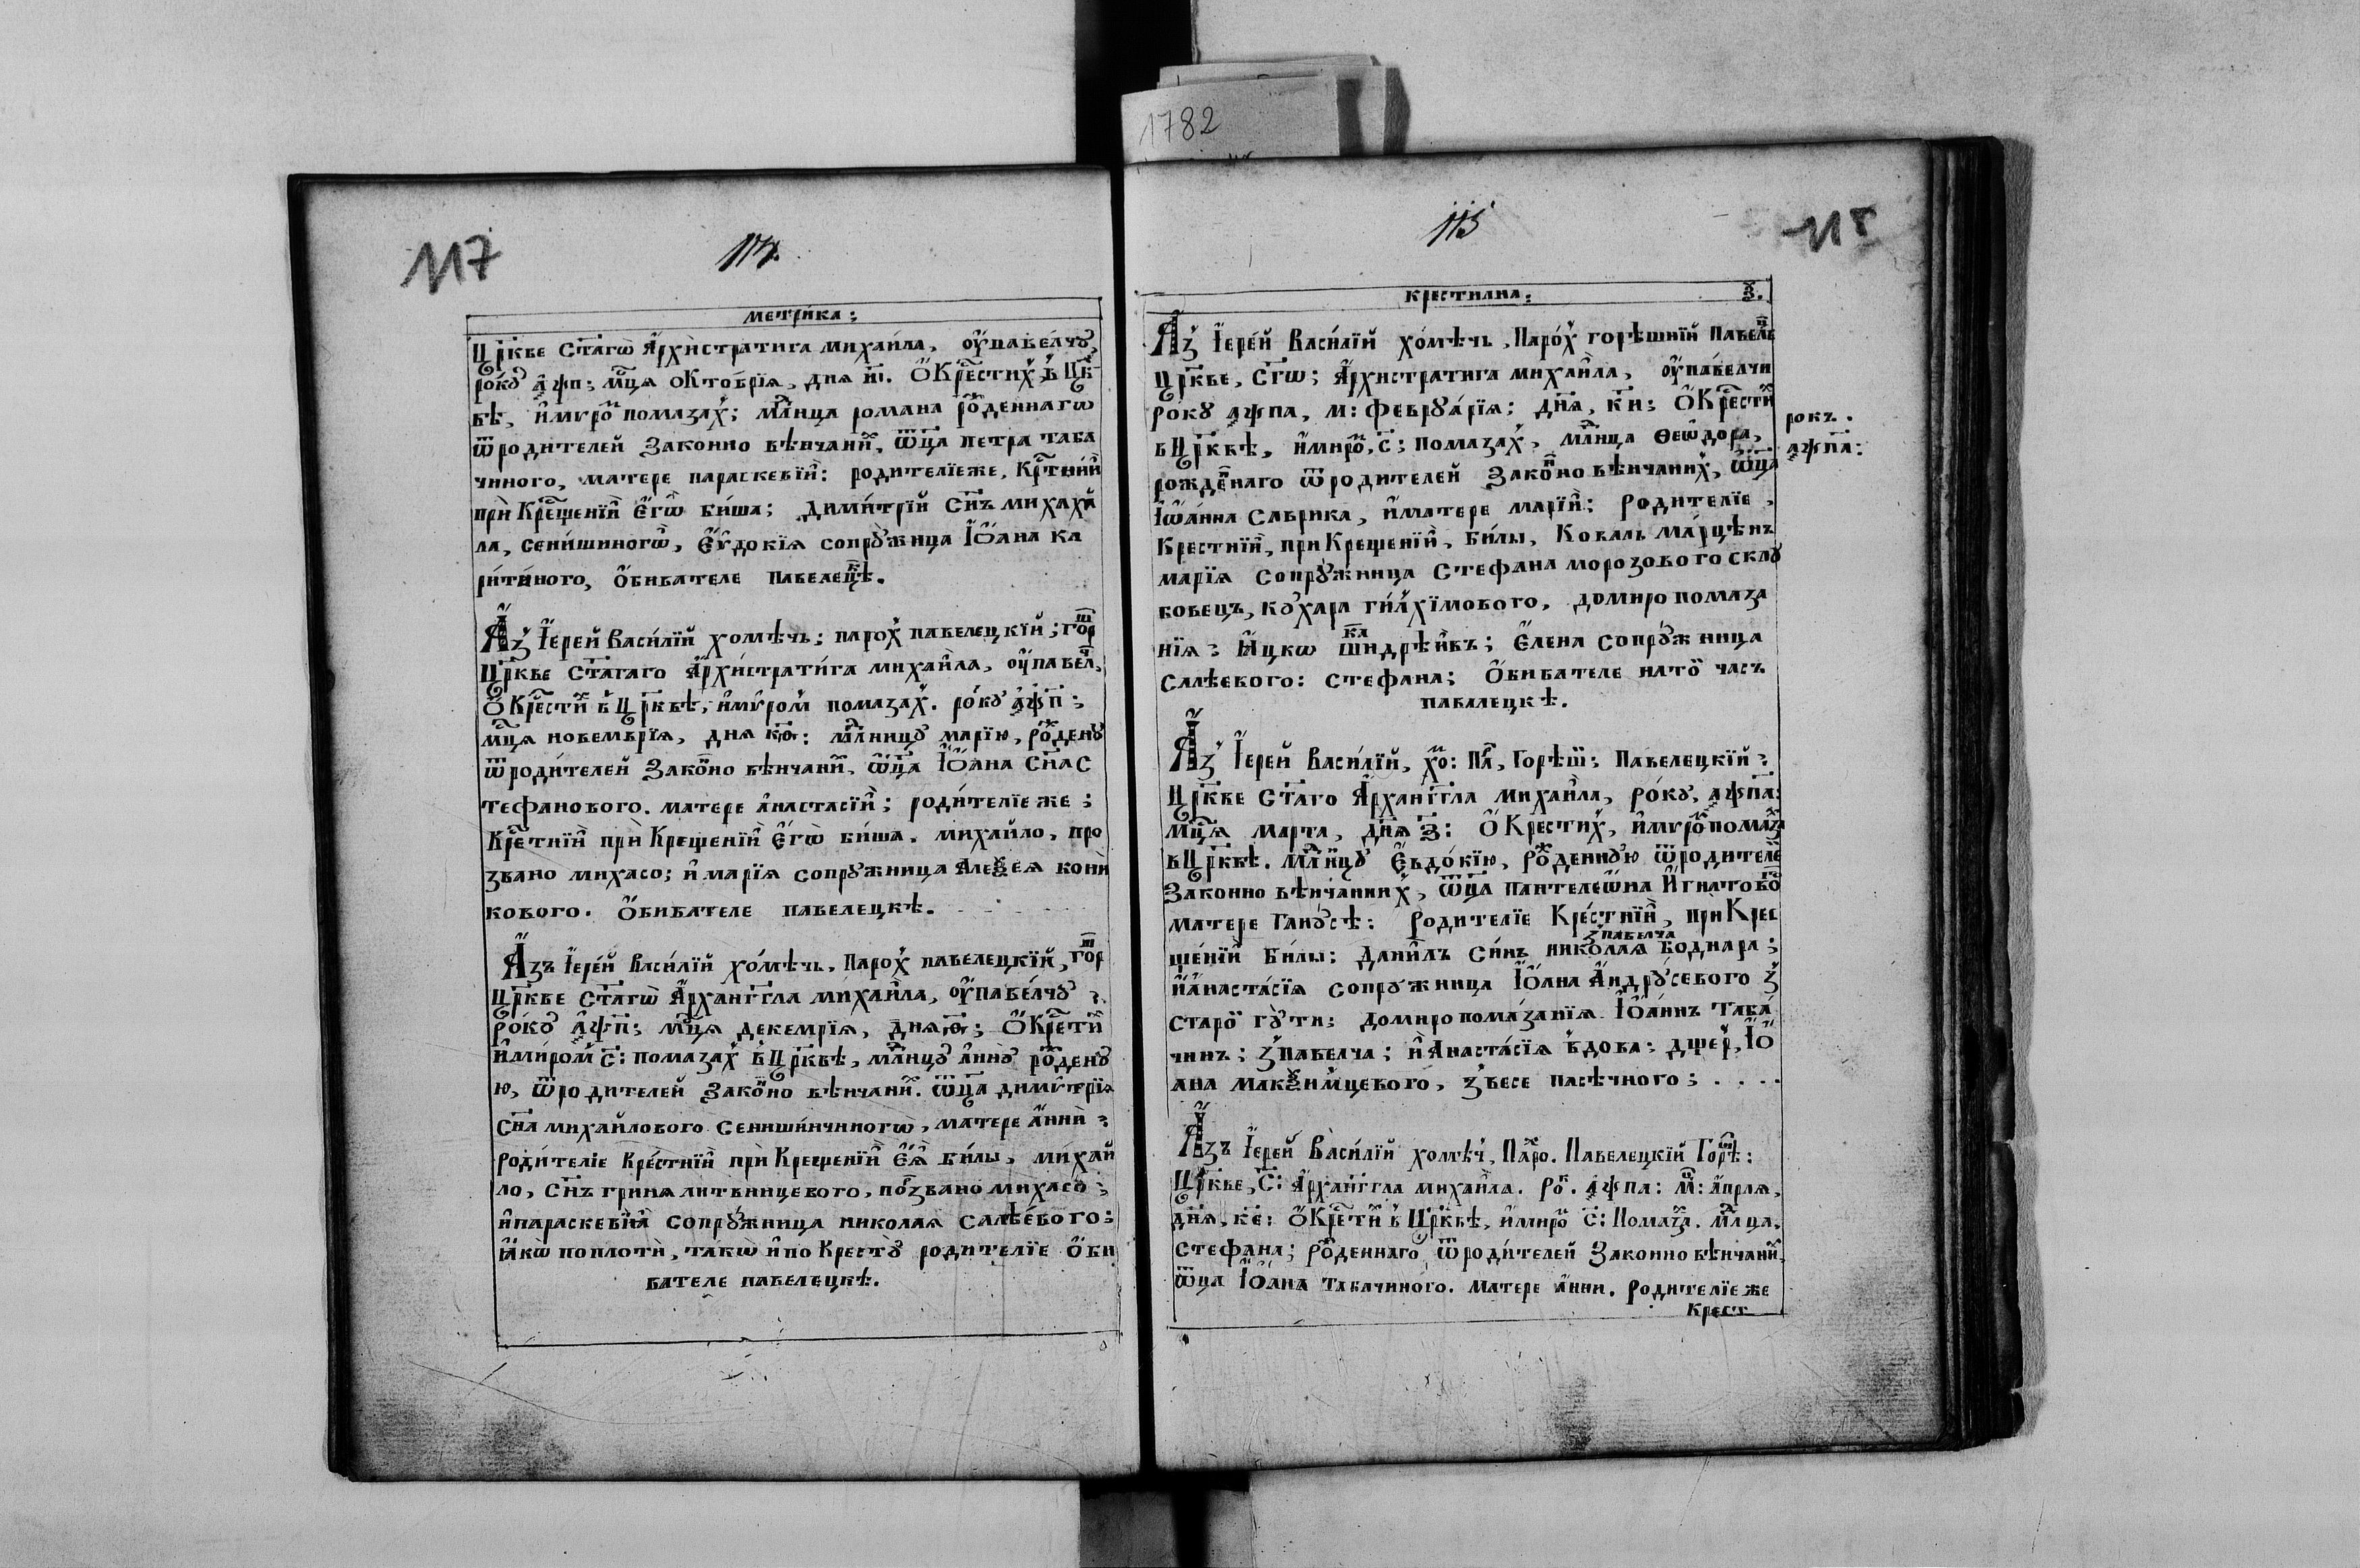 1782
117
114.
метрика:
Цркве Стагѡ Архистратига михаила, ѹ павелчꙋ,
рокꙋ аѱп: мца октобрїа, дня иі. Ѡ Крестих, в Црк
вѣ, и мѵро помазах; млнца романа рожденнагѡ
ѿ родителей законно вѣнчани, ѿца петра таба
чиного, матере параскевїи: родителїе же, Кртнии
при Крещенїи Егѡ биша; димитрїй Снъ михаха
ла, сенишиногѡ, Еѵдокїя сопрꙋжница Іѡана ка
ритиного, ѡбивателе павелецкѣ.
Аз Іерей Василїй хомѣчь: парох павелецкїй; горш
Цркве Стагаго Архистратига михаила, ѹ павел,
Ѡ Крести в Црквѣ, и мѵром помазах. рокꙋ аѱп:
мца новембрїя, дня кѳ: млницꙋ марїю, рожденꙋ
ѿ родителей законно вѣнчани, ѿца Іѡана Сна с
тефанового. матере анастасїи; родителїе же;
Кретнїи при Крещенїи Егѡ биша. михайло, про
звано михасо; и марїя сопрꙋжница Алеѯея кони
кового. Ѡбивателе павелецкѣ.
Азъ Іерей Василїй хомѣчь, Парох павелецкїй, горш
Цркве Стагѡ Арханггла михаила, ѹ павелчꙋ:
рокꙋ аѱп; мця декемрїя, дня ѳ; Ѡ Крети
и миром с: помазах в Црквѣ, млнцꙋ аннꙋ рожденꙋ
ю, ѿ родителей законно вѣнчани. ѿца димѵтрїя
Сна михайлового Сенишинчиногѡ, матере анни:
родителїе Крестнїи при Крещенїи Ея били, михай
ло, Снъ гриня литвинцевого, позвано михасо;
и параскевїя сопрꙋжница николая салѣевого:
якѡ по плоти, такѡ и по Крестꙋ родителїе Ѡби
вателе павелецкѣ.
115
115
крестилна: з.
Аз Іерей Василїй хомѣчь, Парох горѣшнїй павелец
Цркве, Стгѡ; Архистратига михаила, ѹ павелчи
рокꙋ аѱпа, м: феврꙋарїя; дня, ки: Ѡ Крести
рокъ.
в Црквѣ, и миро, с; помазах, млнца Ѳеѡдора,
аѱпа:
рожденаго ѿ родителей законно вѣнчаних, ѿца
Іѡанна Саврика, и матере марїи: родителїе,
Крестнїи, при Крещенїи, били, Коваль марцѣнъ
марїя сопрꙋжница Стефана морозового склꙋ
вовецъ, кꙋхара гилхїмового, до миро помаза
нїя: Яцкѡ шкандрѣивъ; Елена сопрꙋжница
салѣевого: стефана; Ѡбивателе на то часъ
павалецкѣ.
Аз Іерей Василїй, хо: Па, Горѣш: Павелецкїй:
Цркве Стаго Архангла михаила, рокꙋ, аѱпа:
мця марта, дня з: Ѡ Крестих, и мѵро помаз
в Црквѣ. млнцꙋ Евдокїю, рожденнꙋю ѿ родителе
Законно вѣнчанних, ѿца пантелеѡна Игнатово
матере Гандꙋсѣ: Родителїе Крестнїи, при Крес
з павелча
щенїи Били: Данилъ Синъ николая боднара;
и Анастасїя сопрꙋжница Іѡана Андрꙋсевого з
старо гꙋти; до миро помазанїя Іѡаннъ Таба
чинъ; з павелча; и Анастасїя вдова: дщер, Іѡ
ана Макѯимцевого, з весе пасѣчного; . . . .
Азъ Іерей Василїй хомѣч, Паро. Павелецкїй Горѣ:
Цркве, С: Архангла михаила. Ро. аѱпа: м: априля,
дня, ке: Ѡ Крети в Црквѣ, и миро с: Помаза. млца,
стефана; рожденнаго ѿ родителей Законно вѣнчани,
ѿца Іѡана Табачиного. матере анни. Родителїе же
Крест